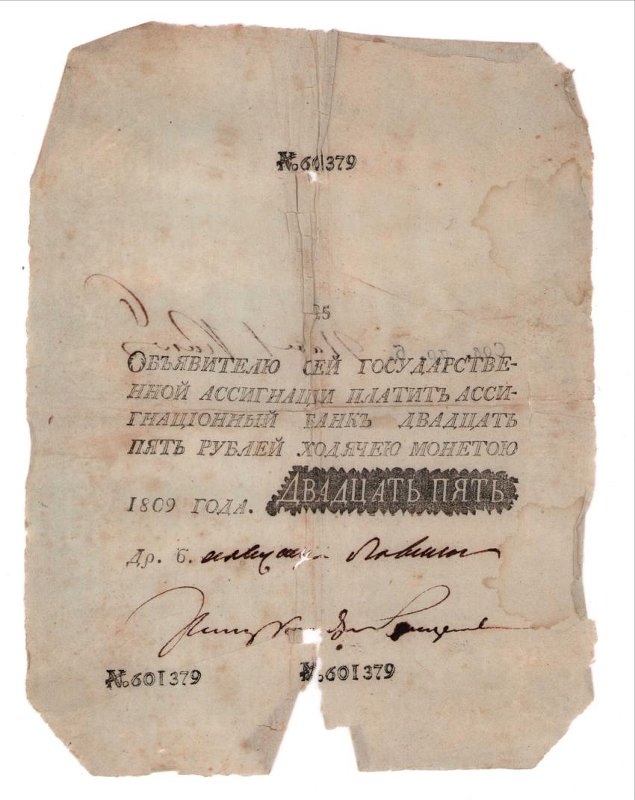 №601379
25
ОБЪЯВИТЕЛЮ СЕЙ ГОСУДАРСТВЕ-
ННОЙ АССИГНАЦИИ ПЛАТИТЪ АССИ-
ГНАЦIОННЫЙ БАНКЪ ДВАДЦАТЬ
ПЯТЬ РУБЛЕЙ ХОДЯЧЕЮ МОНЕТОЮ
1809 ГОДА. ДВАДЦАТЬ ПЯТЬ
Др. 6.
№601379 №601379